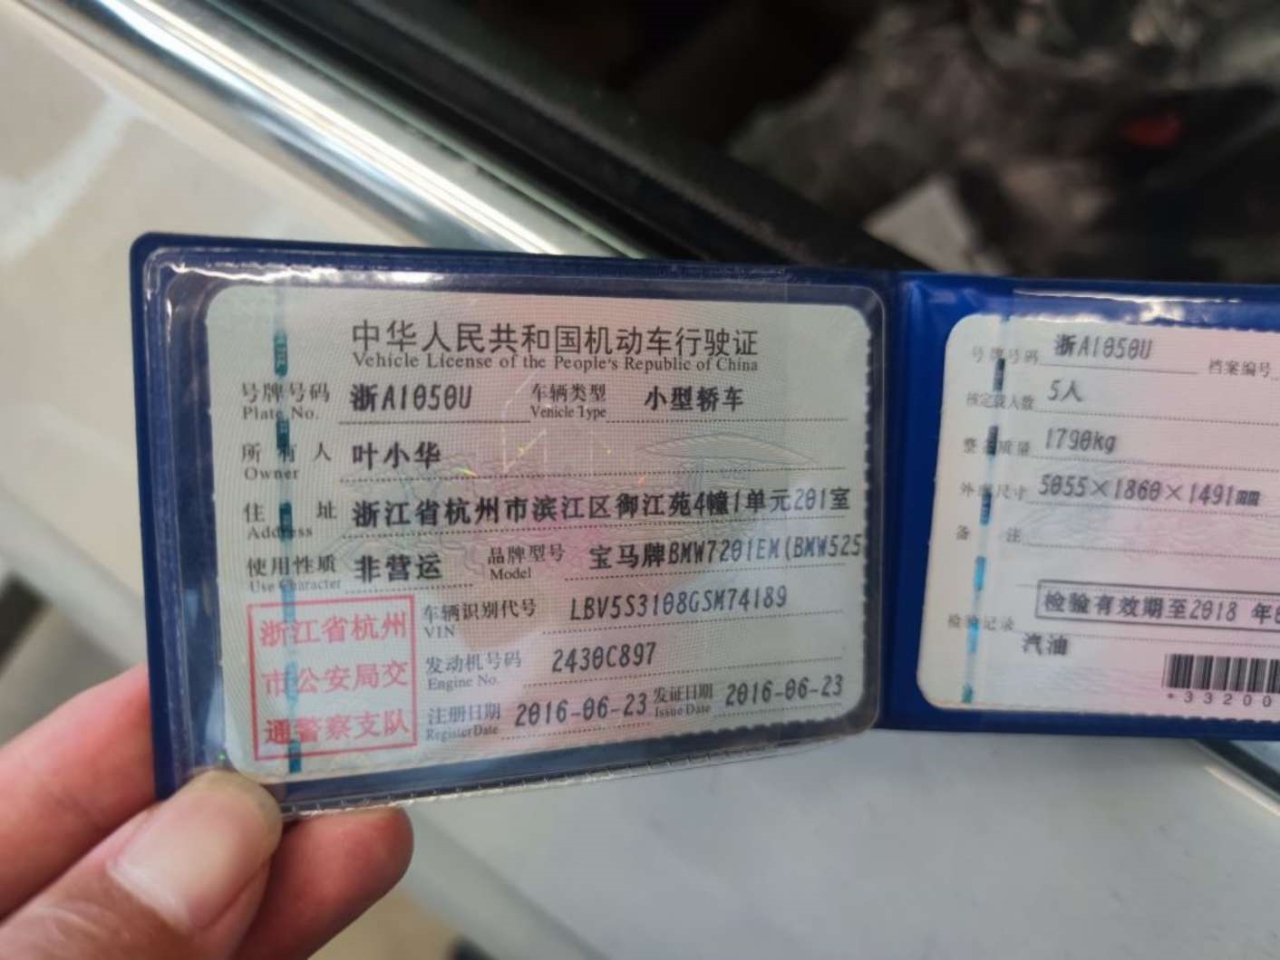 中华人民共和国机动车行驶证
Vehicle License of the People's Republic of China
号牌号码 浙A1050U 车辆类型 小型轿车
Plate No. Vehicle Type
所有人 叶小华
Owner
住址 浙江省杭州市滨江区御江苑4幢1单元201室
Address
使用性质 非营运 品牌型号 宝马牌BMW7201EM(BMW525
Use Character Model
浙江省杭州
市公安局交
通警察支队
车辆识别代号 LBV5S3108GSM74189
VIN
发动机号码 2430C897
Engine No.
注册日期 2016-06-23 发证日期 2016-06-23
Register Date Issue Date
号牌号码 浙A1050U 档案编号
核定载人数 5人
整备质量 1790kg
外廓尺寸 5055×1860×1491mm
备注
检验有效期至2018 年
检验记录
汽油
*33200